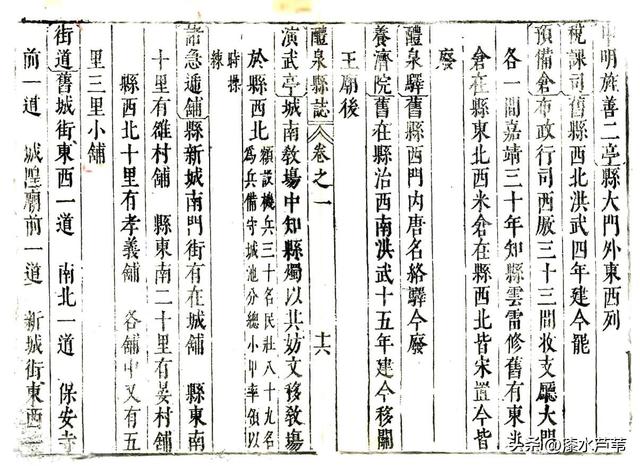 申明旌善二亭縣大門外東西列
稅課司舊縣西北洪武四年建今罷
預備倉布政行司西厫三十三間收支廳大門
各一間嘉靖三十年知縣雲霄修舊有東北
倉在縣東北西米倉在縣西北皆宋置今皆
廢
醴泉驛舊縣西門內唐名絡驛今廢
養濟院舊在縣治西南洪武十五年建今移關
王廟後
醴泉縣誌 卷之一 十六
演武亭城南教場中知縣獨以其妨文移教場
於縣西北額設機兵三十名民壯八十九名
為兵備守城池分總小甲率領以
時操
練
諸急遞舖縣新城南門街有在城舖 縣東南
十里有雒村舖 縣東南二十里有晏村舖
縣西北十里有孝義舖 各舖中又有五
里三里小舖
街道舊城街東西一道 南北一道 保安寺
前一道 城隍廟前一道 新城街東西一
头条 @漆水芦苇